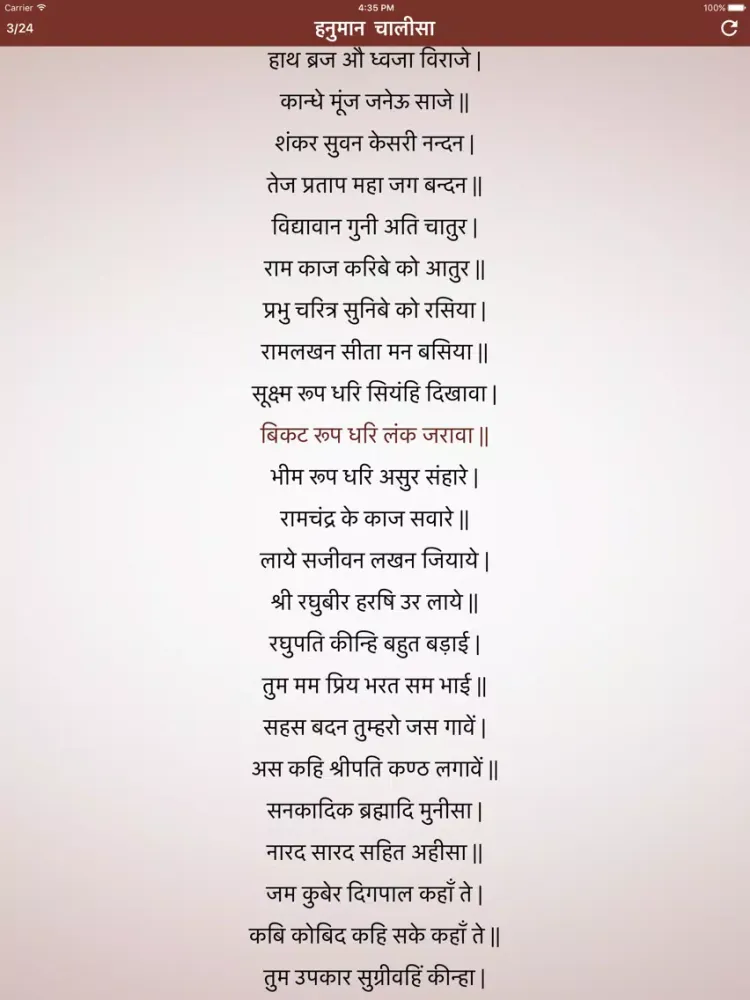 Carrier 4:35 PM 100%
3/24 हनुमान चालीसा
हाथ ब्रज औ ध्वजा विराजे |
कान्धे मूंज जनेऊ साजे ||
शंकर सुवन केसरी नन्दन |
तेज प्रताप महा जग बन्दन ||
विद्यावान गुनी अति चातुर |
राम काज करिबे को आतुर ||
प्रभु चरित्र सुनिबे को रसिया |
रामलखन सीता मन बसिया ||
सूक्ष्म रूप धरि सियंहि दिखावा |
बिकट रूप धरि लंक जरावा ||
भीम रूप धरि असुर संहारे |
रामचंद्र के काज सवारे ||
लाये सजीवन लखन जियाये |
श्री रघुबीर हरषि उर लाये ||
रघुपति कीन्हि बहुत बड़ाई |
तुम मम प्रिय भरत सम भाई ||
सहस बदन तुम्हरो जस गावें |
अस कहि श्रीपति कण्ठ लगावें ||
सनकादिक ब्रह्मादि मुनीसा |
नारद सारद सहित अहीसा ||
जम कुबेर दिगपाल कहाँ ते |
कबि कोबिद कहि सके कहाँ ते ||
तुम उपकार सुग्रीवहिं कीन्हा |